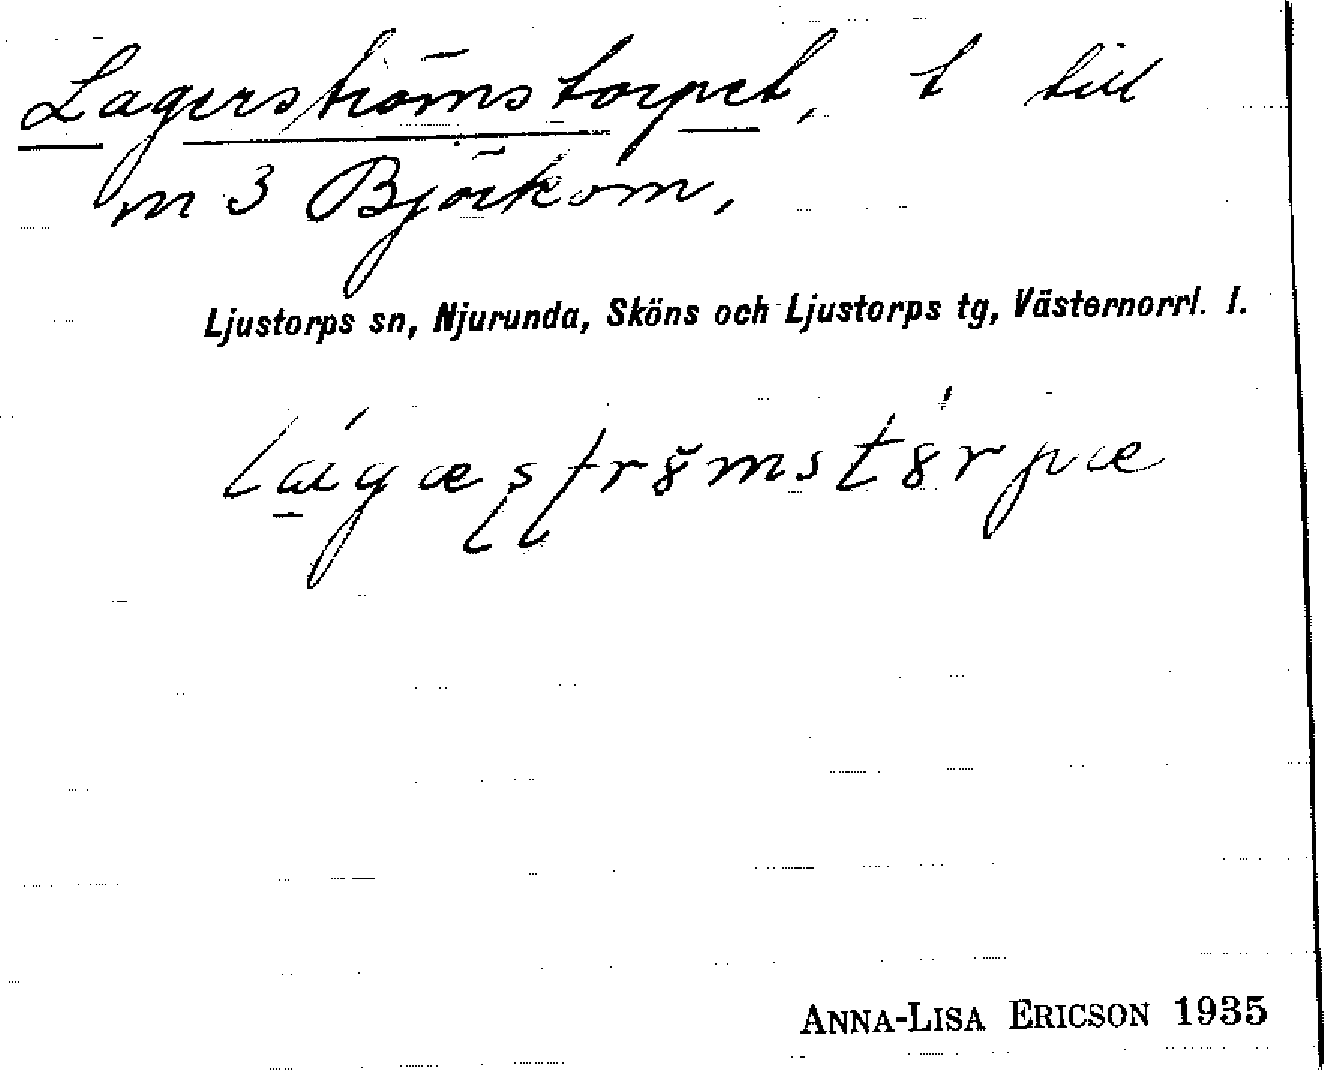 Lagerströmstorpet, t till
m 3 Björkom,
Ljustorps sn, Njurunda, Sköns och Ljustorps tg, Västernorrl. l.
ANNA-LISA ERICSON 1935